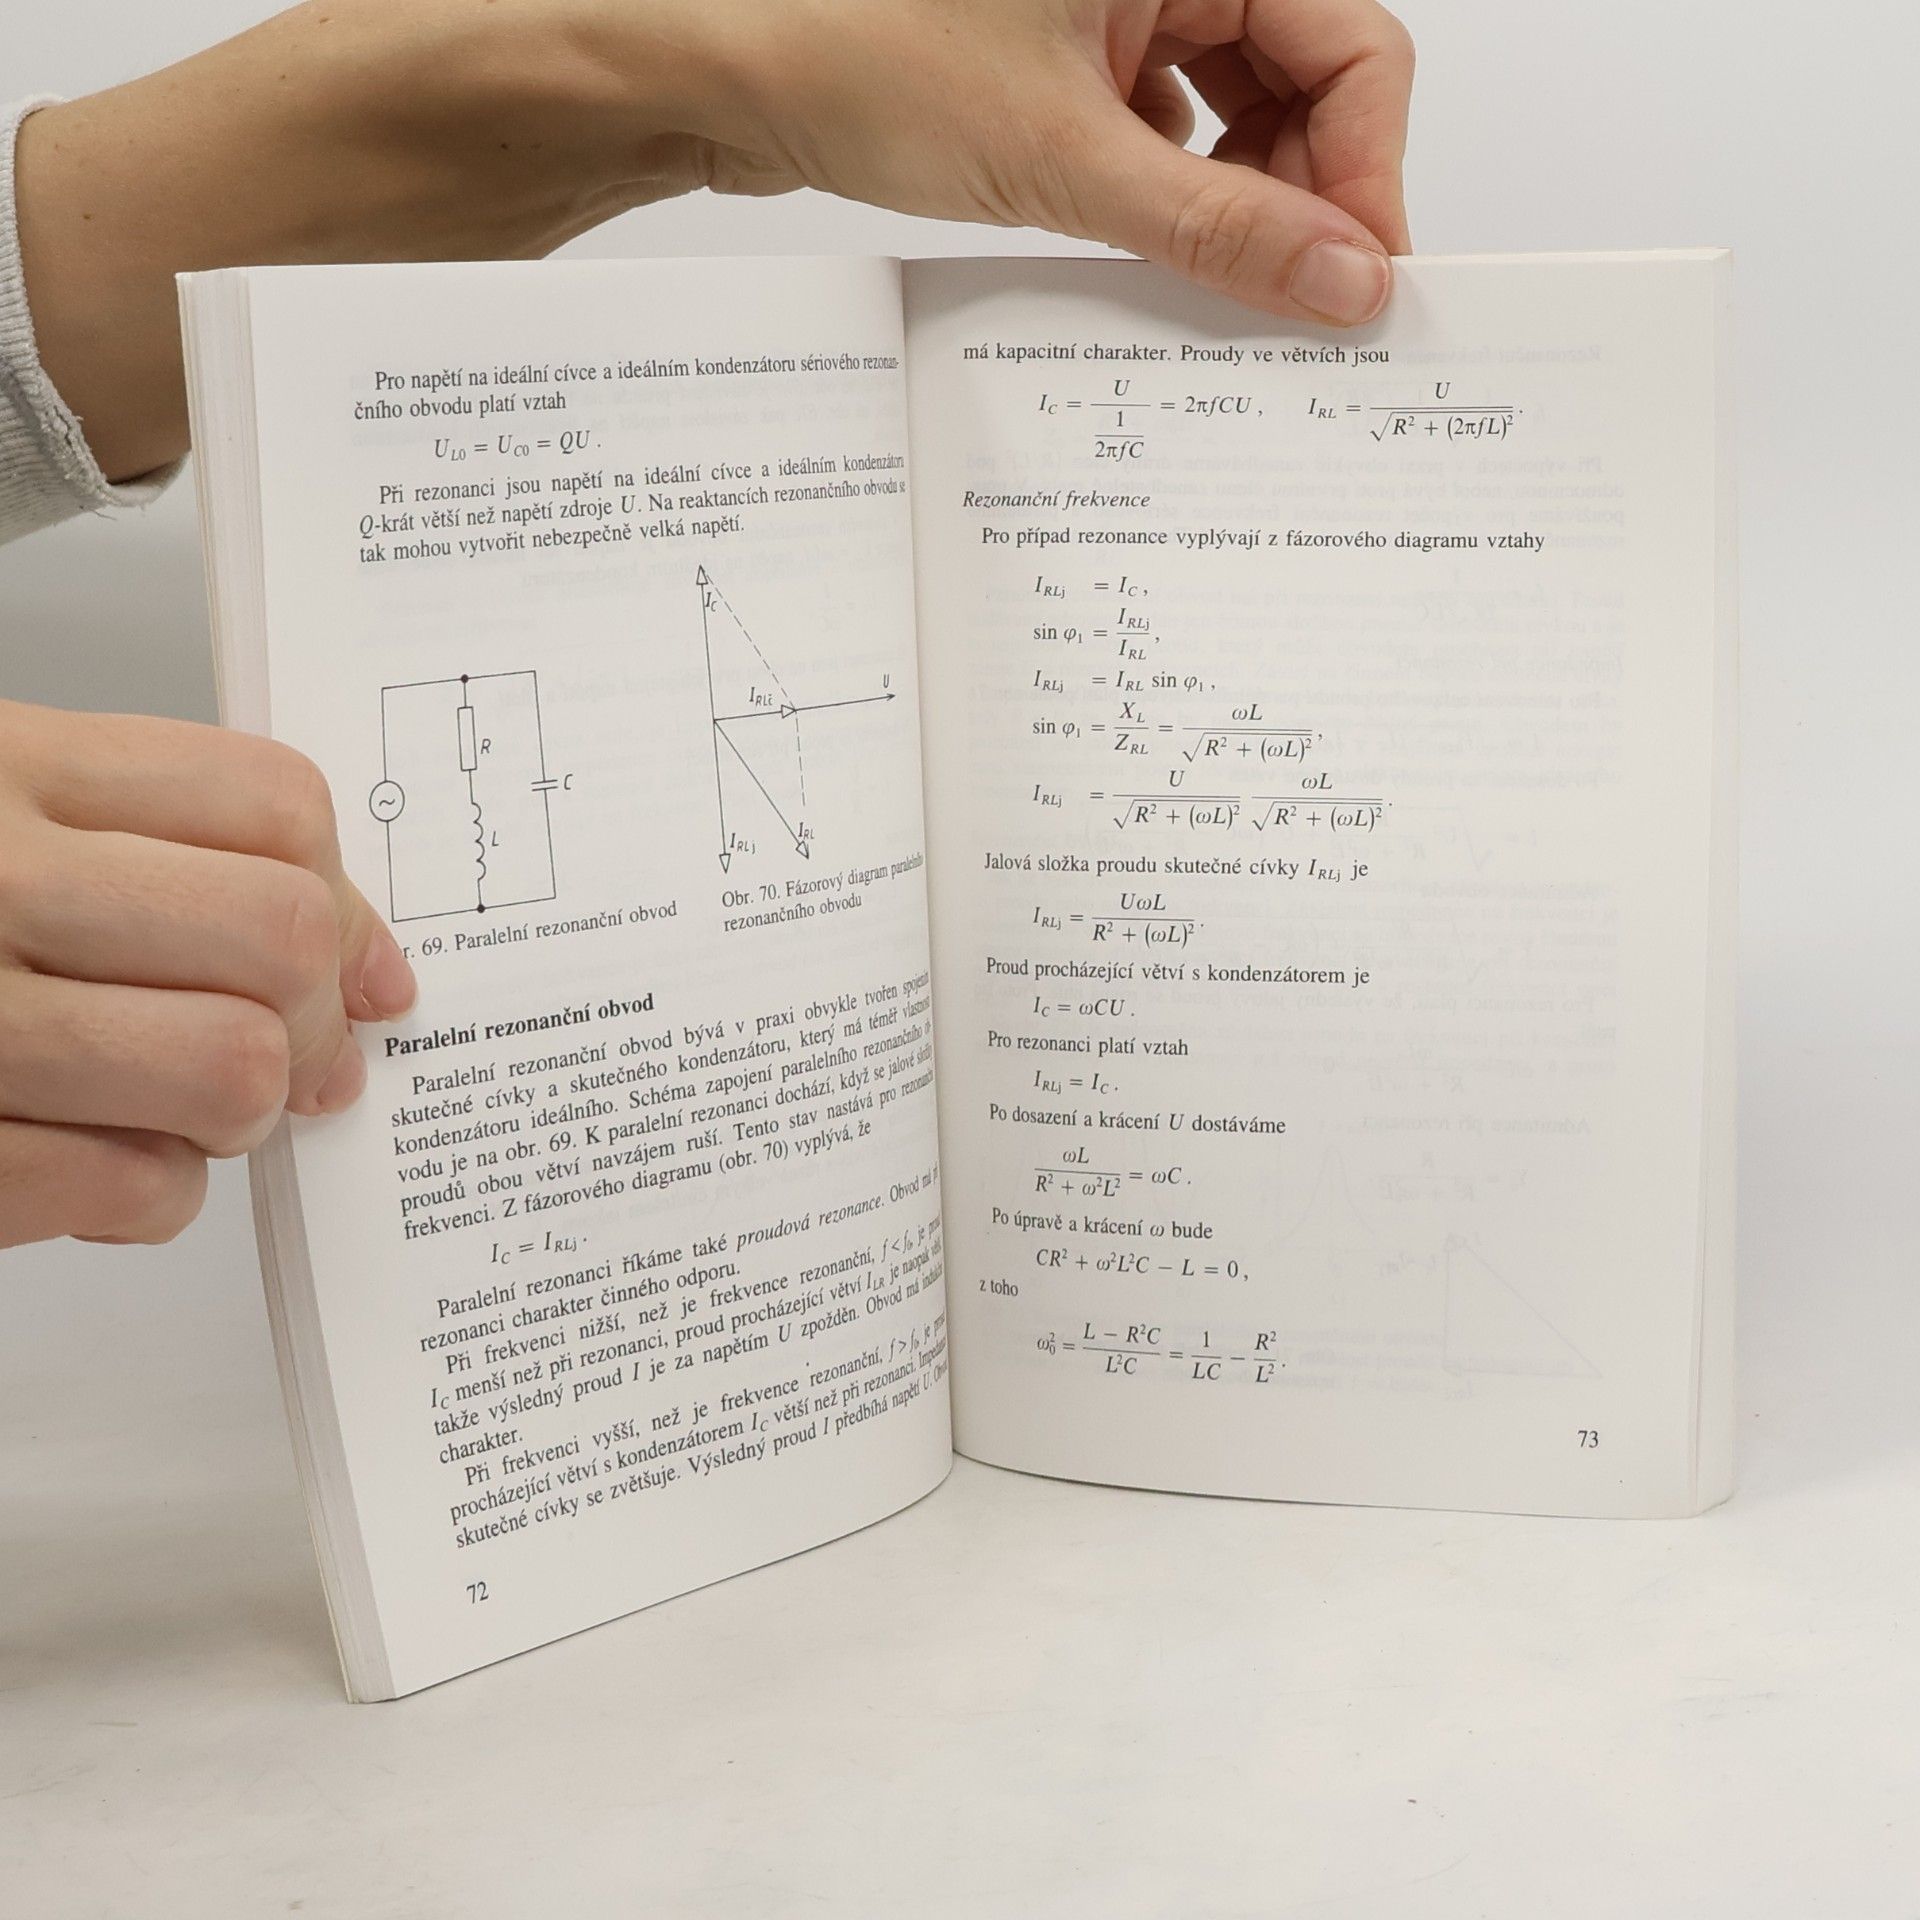 Pro napětí na ideální cívce a ideálním kondenzátoru sériového rezonan-
čního obvodu platí vztah
U_L0 = U_C0 = QU .
Při rezonanci jsou napětí na ideální cívce a ideálním kondenzátoru
Q-krát větší než napětí zdroje U. Na reaktancích rezonančního obvodu se
tak mohou vytvořit nebezpečně velká napětí.
R
L
C
~
I_C
I_RLč
U
I_RLj
I_RL
r. 69. Paralelní rezonanční obvod
Obr. 70. Fázorový diagram paralelního
rezonančního obvodu
Paralelní rezonanční obvod
Paralelní rezonanční obvod bývá v praxi obvykle tvořen spojením
skutečné cívky a skutečného kondenzátoru, který má téměř vlastnosti
kondenzátoru ideálního. Schéma zapojení paralelního rezonančního ob-
vodu je na obr. 69. K paralelní rezonanci dochází, když se jalové složky
proudů obou větví navzájem ruší. Tento stav nastává pro rezonanční
frekvenci. Z fázorového diagramu (obr. 70) vyplývá, že
I_C = I_RLj .
Paralelní rezonanci říkáme také proudová rezonance. Obvod má při
rezonanci charakter činného odporu.
Při frekvenci nižší, než je frekvence rezonanční, f < f_0, je proud
I_C menší než při rezonanci, proud procházející větví I_LR je naopak větší,
takže výsledný proud I je za napětím U zpožděn. Obvod má
charakter.
Při frekvenci vyšší, než je frekvence rezonanční, f > f_0, je proud
procházející větví s kondenzátorem I_C větší než při rezonanci. Impedance
skutečné cívky se zvětšuje. Výsledný proud I předbíhá napětí U.
72
má kapacitní charakter. Proudy ve větvích jsou
I_C = U / (1 / 2πfC) = 2πfCU , I_RL = U / √(R² + (2πfL)²) .
Rezonanční frekvence
Pro případ rezonance vyplývají z fázorového diagramu vztahy
I_RLj = I_C ,
sin φ₁ = I_RLj / I_RL ,
I_RLj = I_RL sin φ₁ ,
sin φ₁ = X_L / Z_RL = ωL / √(R² + (ωL)²) ,
I_RLj = U / √(R² + (ωL)²) ωL / √(R² + (ωL)²) .
Jalová složka proudu skutečné cívky I_RLj je
I_RLj = UωL / (R² + (ωL)²) .
Proud procházející větví s kondenzátorem je
I_C = ωCU .
Pro rezonanci platí vztah
I_RLj = I_C .
Po dosazení a krácení U dostáváme
ωL / (R² + ω²L²) = ωC .
Po úpravě a krácení ω bude
CR² + ω²L²C − L = 0 ,
z toho
ω₀² = (L − R²C) / L²C = 1 / LC − R² / L² .
73